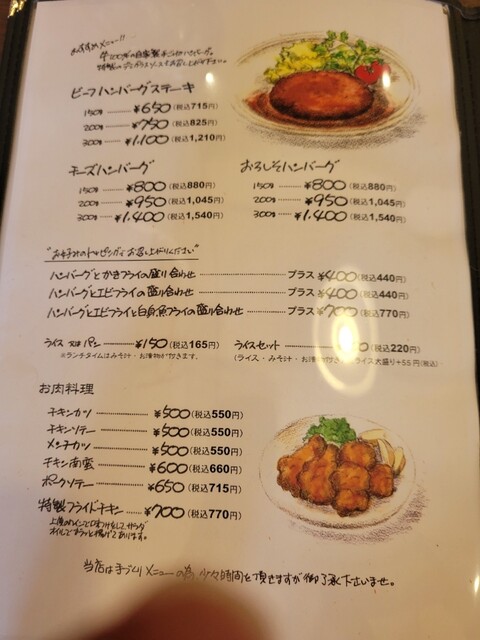 おすすめメニュー!!
牛100%の自家製手ごねハンバーグ。
特製のデミグラスソースでお召し上がり下さい。
ビーフハンバーグステーキ
150g ¥650(税込715円)
200g ¥750(税込825円)
300g ¥1,100(税込1,210円)
チーズハンバーグ
150g ¥800(税込880円)
200g ¥950(税込1,045円)
300g ¥1,400(税込1,540円)
おろしそハンバーグ
150g ¥800(税込880円)
200g ¥950(税込1,045円)
300g ¥1,400(税込1,540円)
"お好みのトッピングでお召し上がりください"
ハンバーグとかきフライの盛り合わせ プラス ¥400(税込440円)
ハンバーグとエビフライの盛り合わせ プラス ¥400(税込440円)
ハンバーグとエビフライと白身魚フライの盛り合わせ プラス ¥700(税込770円)
ライス 又は パン ¥150(税込165円)
※ランチタイムはみそ汁・お漬物が付きます。
ライスセット (税込220円)
(ライス・みそ汁・お漬物付き ライス大盛り+55円(税込)
お肉料理
チキンカツ ¥500(税込550円)
チキンソテー ¥500(税込550円)
メンチカツ ¥500(税込550円)
チキン南蛮 ¥600(税込660円)
ポークソテー ¥650(税込715円)
特製フライドチキン ¥700(税込770円)
当店は手づくりメニューの為、少々時間を頂きますが御了承下さいませ。